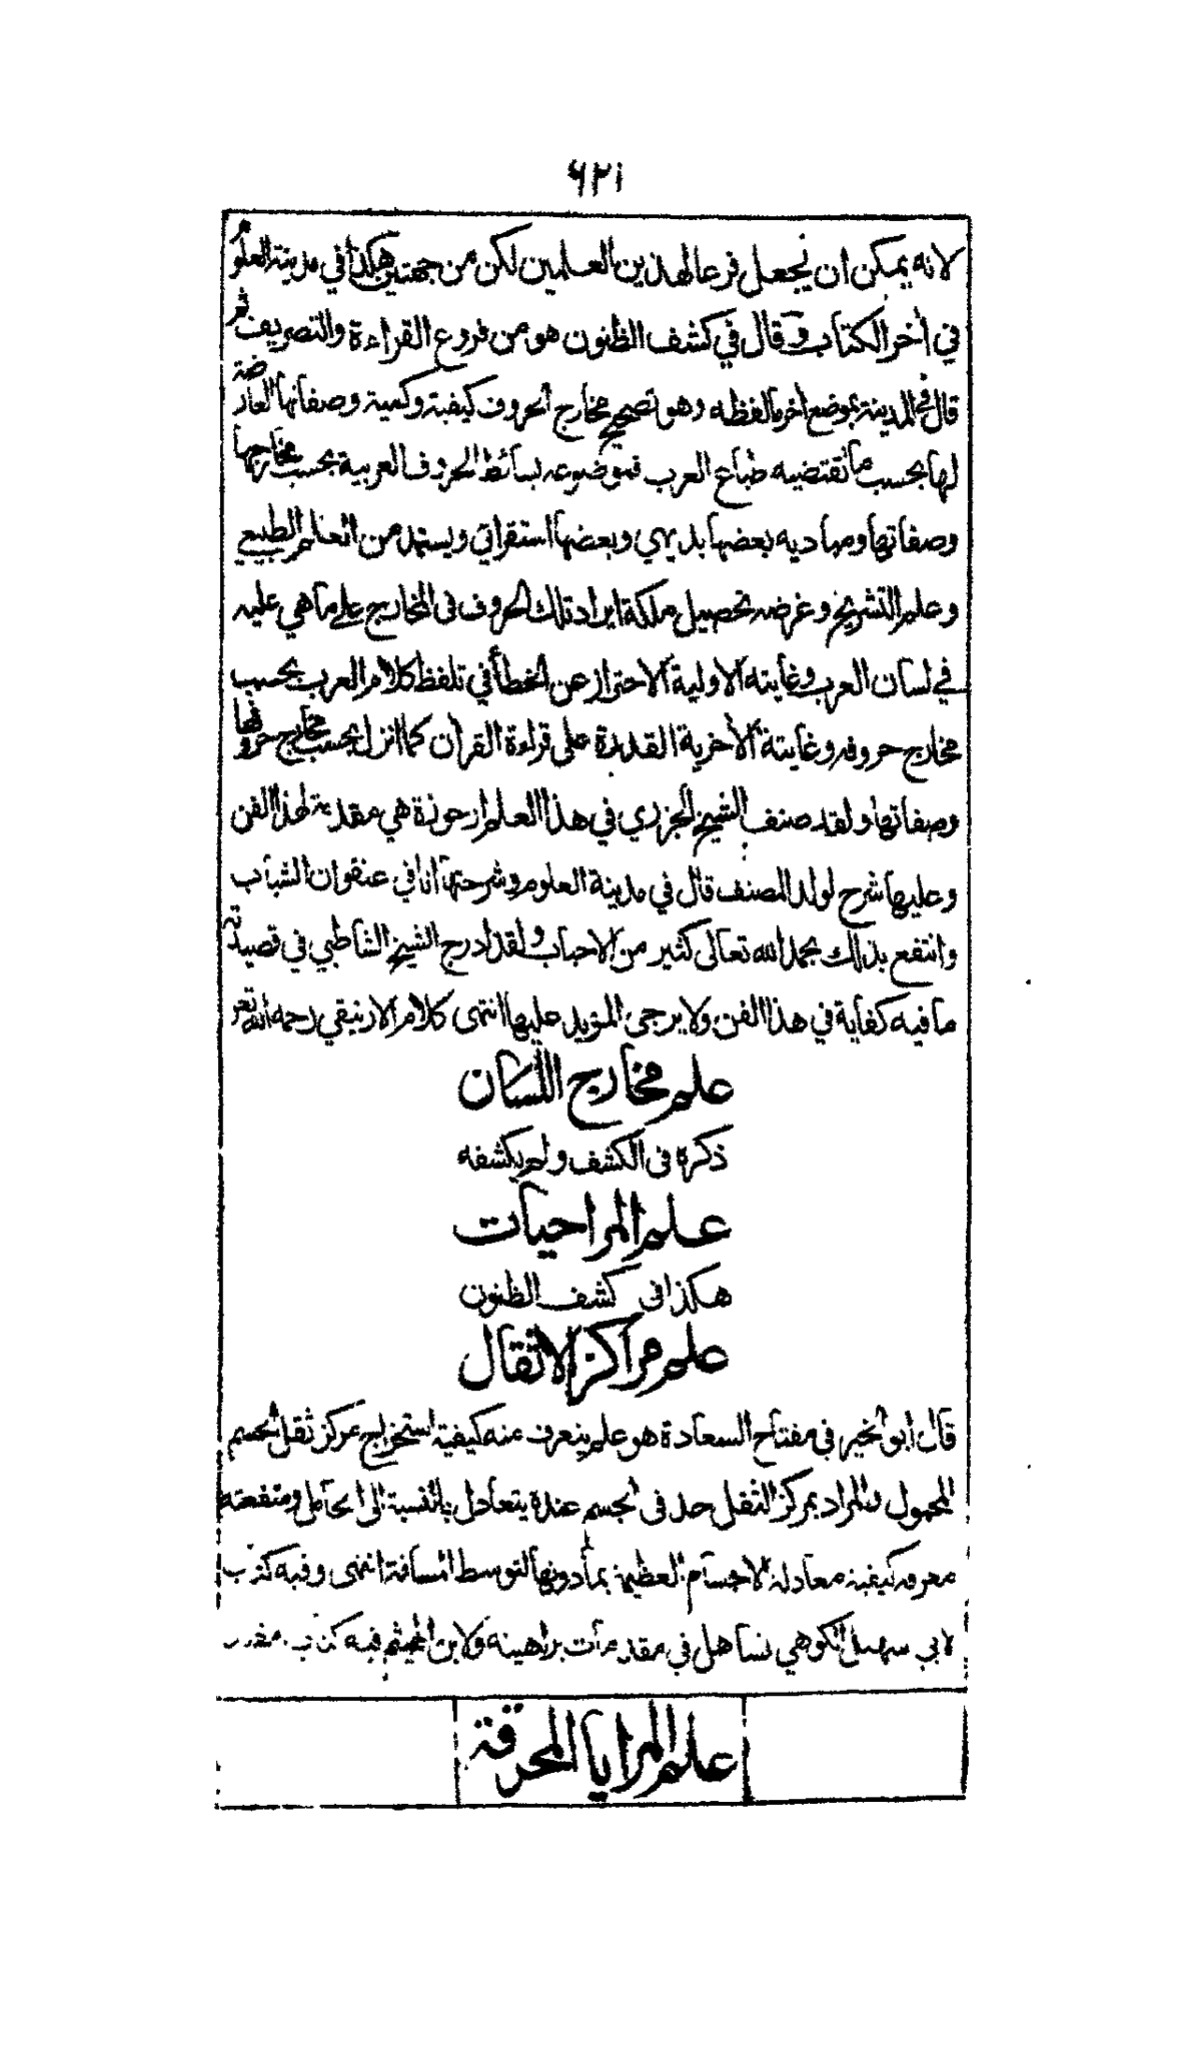 ٦٢١
لانه يمكن ان يجعل فرعا لهذين العلمين لكن من جهتين هكذا في مدينة العلوم
في أخر الكتاب وقال في كشف الظنون هو من فروع القراءة والتصريف ثم
قال في المدينة بموضع اخر ما لفظه وهو تصحيح مخارج الحروف كيفية وكمية وصفاتها العارضة
لها بحسب ما تقتضيه طباع العرب فموضوعه بسائط الحروف العربية بحسب مخارجها
وصفاتها ومباديه بعضها بديهي وبعضها استقرائي ويستمد من العلم الطبيعي
وعلم التشريح وغرضه تحصيل ملكة ايراد تلك الحروف فى المخارج على ما هي عليه
في لسان العرب وغايته الاولية الاحتراز عن الخطأ في تلفظ كلام العرب بحسب
مخارج حروفه وغايتة الأخرية القدرة على قراءة القرأن كما انزل بحسب مخارج حروفها
وصفاتها ولقد صنف الشيخ الجزري في هذا العلم ارجوزة هي مقدمة لهذا الفن
وعليها شرح لولد المصنف قال في مدينة العلوم وشرحتها انا في عنفوان الشباب
وانتفع بذلك بحمد الله تعالى كثير من الاحباب ولقد ادرج الشيخ الشاطبي في قصيدته
ما فيه كفاية في هذا الفن ولا يرجى المزيد عليها انتهى كلام الارنيقي رحمه الله تعر
علم مخارج اللسان
ذكره فى الكشف ولم يكشفه
علم المراحيات
هكذا فى كشف الظنون
علم مراكز الاثقال
قال ابو الخير فى مفتاح السعادة هو علم يتعرف منه كيفية استخراج مركز ثقل الجسم
المحمول والمراد بمركز الثقل حد فى الجسم عنده يتعادل بالنسبة الى الحامل ومنفعته
معرفة كيفية معادلة الاجسام العظيمة بما دونها لتوسط المسافة انتهى وفيه كتاب
لابي سهل الكوهي تساهل في مقدمات براهينه ولابن الهيثم فيه كتاب مفرد
علم المرايا المحرقة